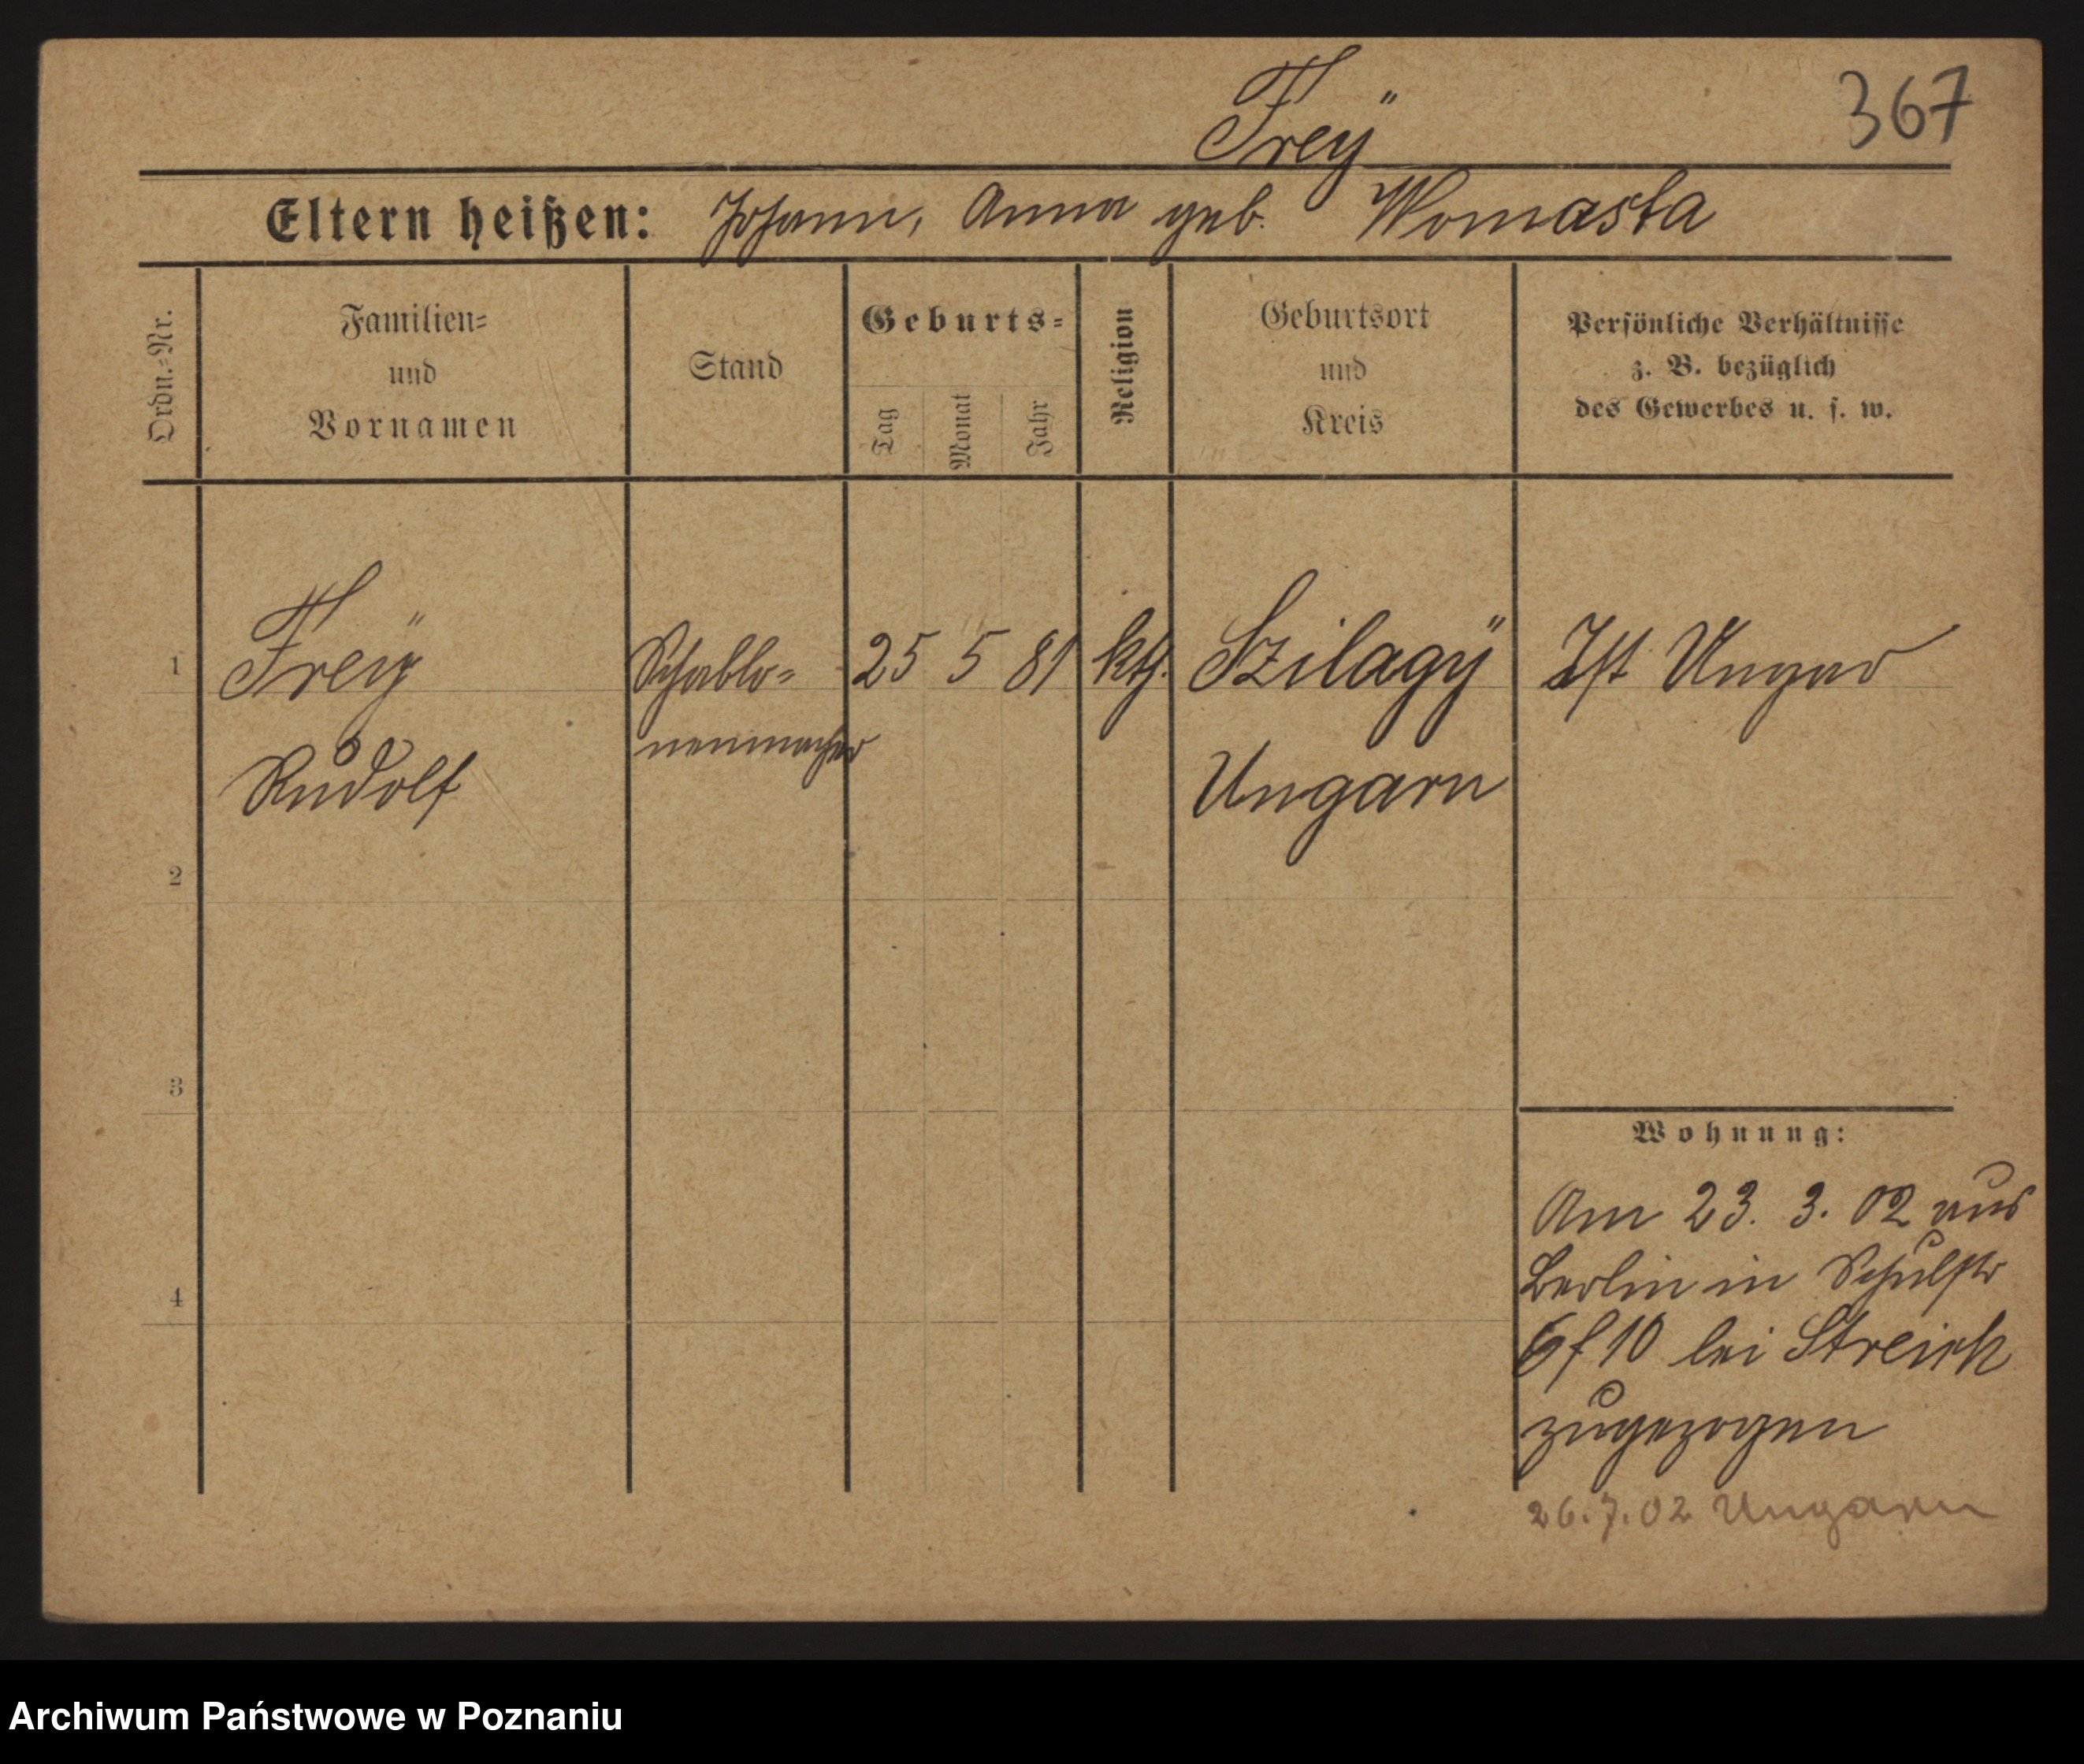 Freÿ
367
Eltern heißen: Johann, Anna geb. Womasta
Ordn.=Nr.
Familien=
und
Vornamen
Stand
Geburts=
Tag
Monat
Jahr
Religion
Geburtsort
und
Kreis
Persönliche Verhältnisse
z. B. bezüglich
des Gewerbes u. s. w.
1
Freÿ
Schablo=
25 5 81
kth.
Szilagÿ
Ist Ungar
nenmacher
Rudolf
Ungarn
2
3
Wohnung:
Am 23. 3. 02 aus
Berlin in Schulstr
4
6f10 bei Streich
zugezogen
26.7.02 Ungarn
Archiwum Państwowe w Poznaniu